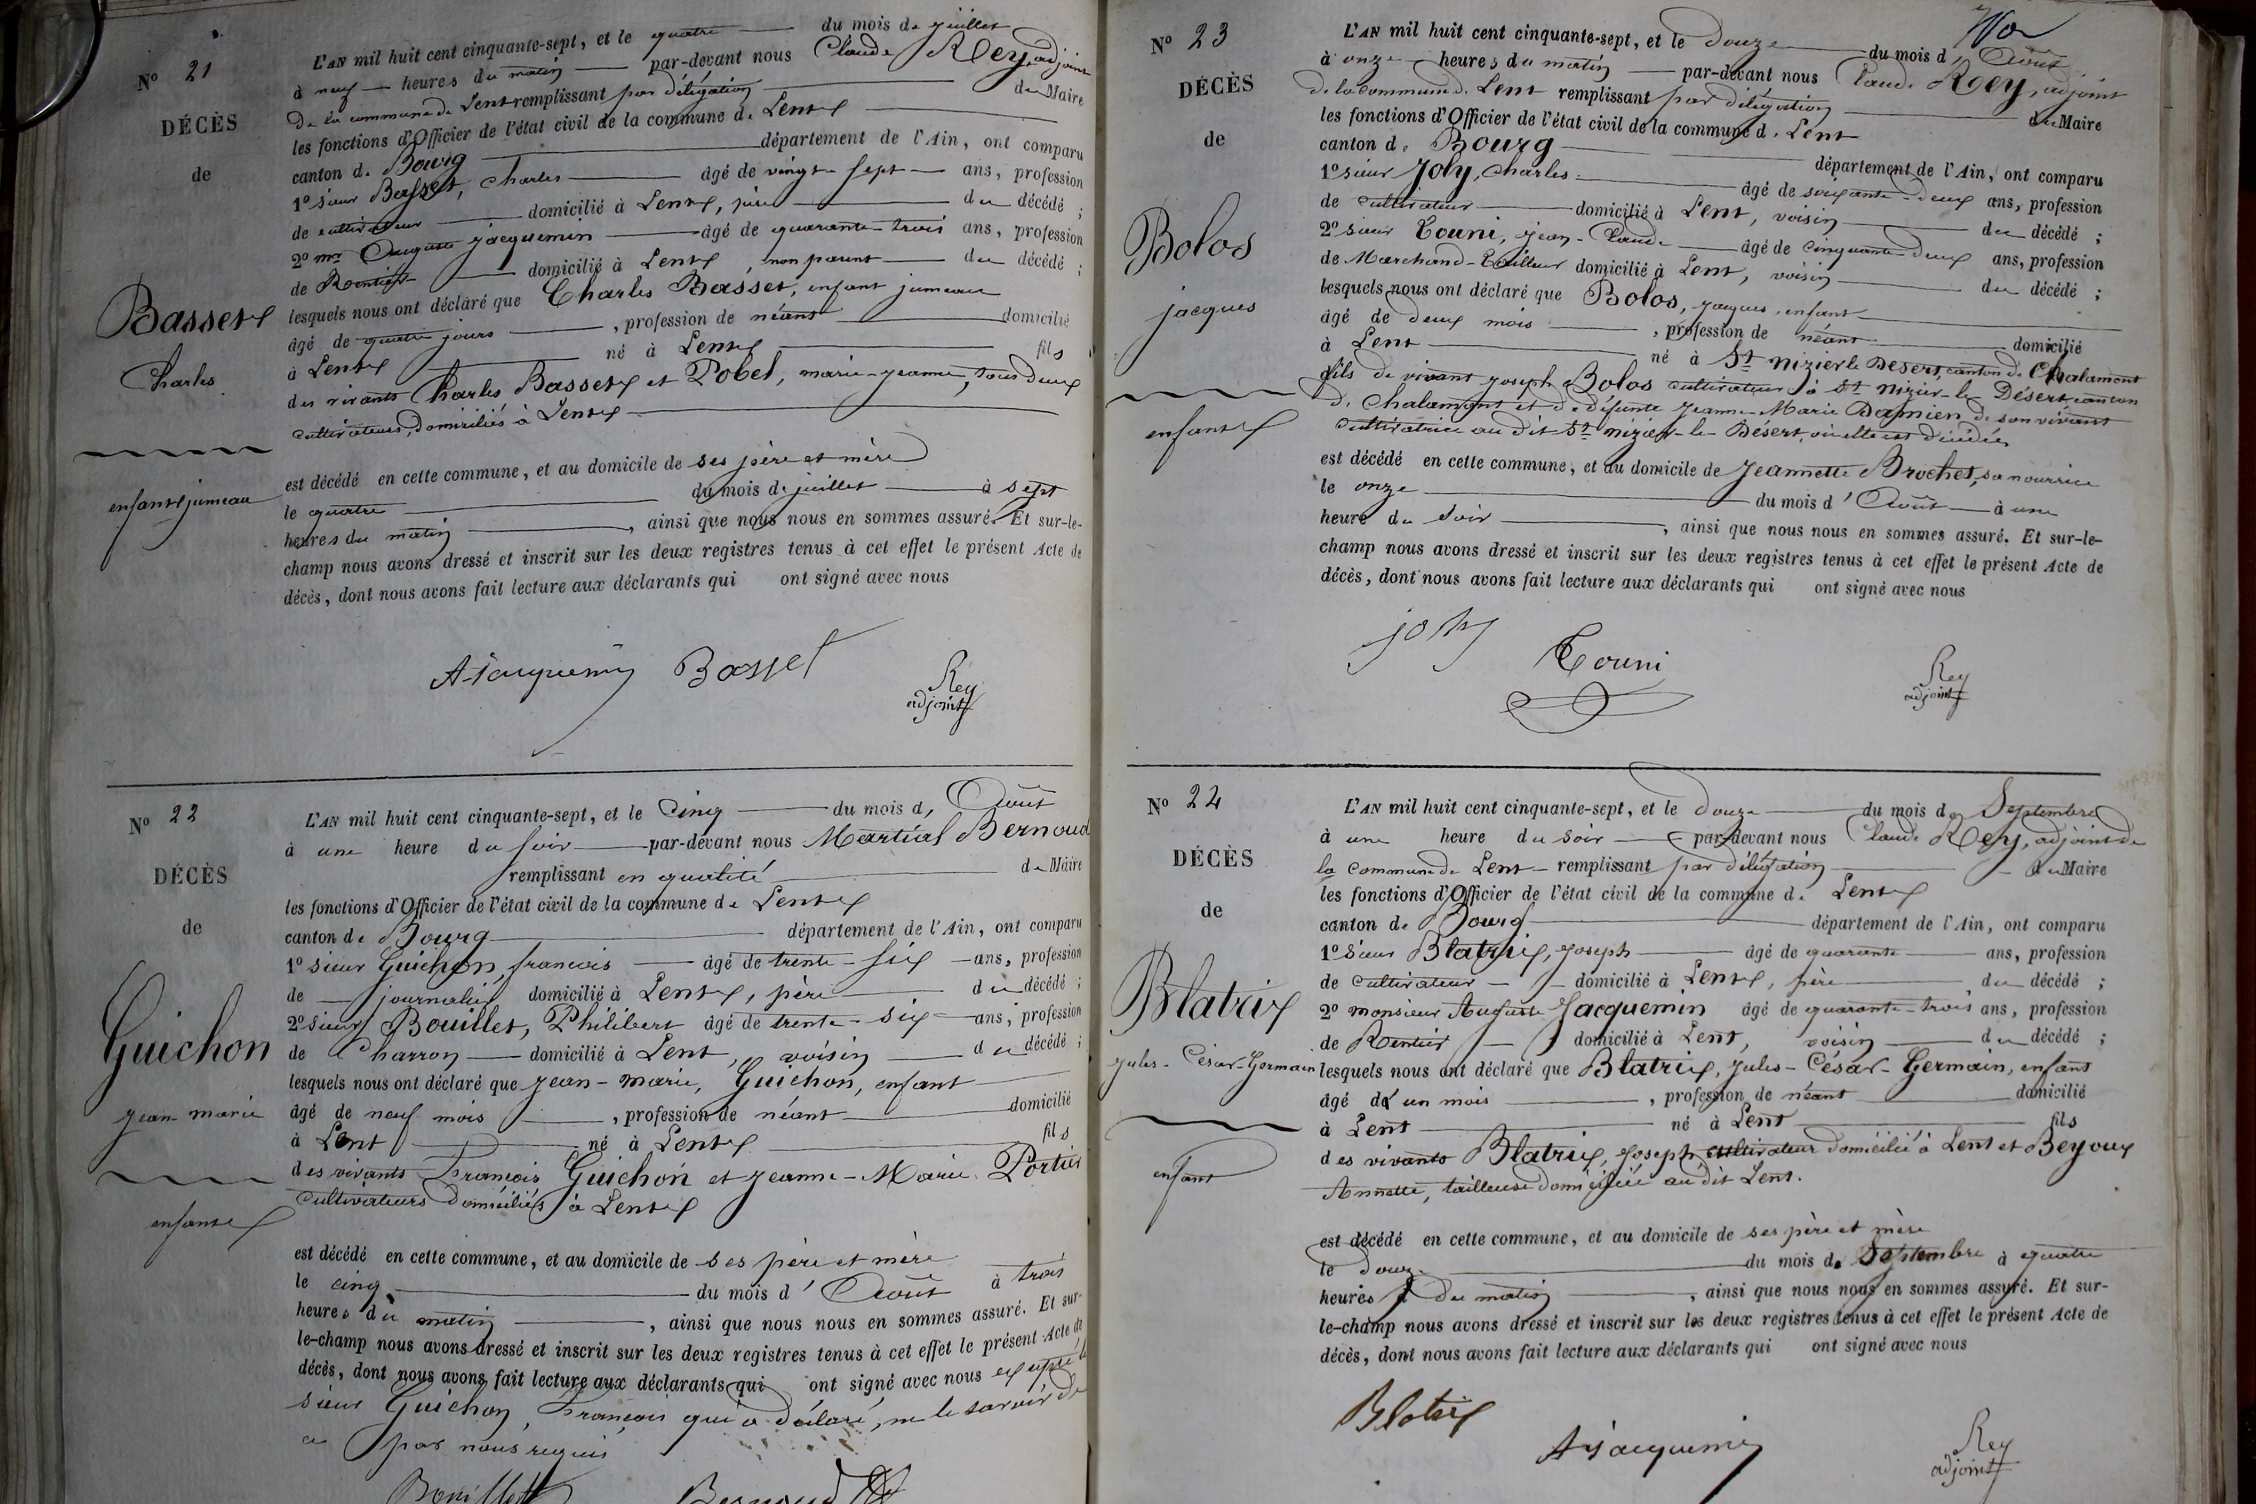 N° 21
DÉCÈS
de
Basset
Charles
enfant jumeau
L'AN mil huit cent cinquante-sept, et le quatre du mois de juillet
à neuf heures du matin par-devant nous Claude Rey, adjoint
de la commune de Lent remplissant par délégation du Maire
les fonctions d'Officier de l'état civil de la commune de Lent
canton de Bourg département de l'Ain, ont comparu
1° sieur Basset, Charles âgé de vingt-sept ans, profession
de cultivateur domicilié à Lent, père du décédé ;
2° mr Auguste Jacquemin âgé de quarante-trois ans, profession
de Rentier domicilié à Lent, non parent du décédé ;
lesquels nous ont déclaré que Charles Basset, enfant jumeau
âgé de quatre jours , profession de néant domicilié
à Lent né à Lent fils
des vivants Charles Basset et Pobel, marie-jeanne, tous deux
cultivateurs, domiciliés à Lent
est décédé en cette commune, et au domicile de ses père et mère
le quatre du mois de juillet à sept
heures du matin , ainsi que nous nous en sommes assuré. Et sur-le-
champ nous avons dressé et inscrit sur les deux registres tenus à cet effet le présent Acte de
décès, dont nous avons fait lecture aux déclarants qui ont signé avec nous
A Jacquemin Basset
Rey
adjoint
N° 22
DÉCÈS
de
Guichon
jean marie
enfant
L'AN mil huit cent cinquante-sept, et le cinq du mois d' Août
à une heure du soir par-devant nous Martial Bernoud
remplissant en qualité de Maire
les fonctions d'Officier de l'état civil de la commune de Lent
canton de Bourg département de l'Ain, ont comparu
1° sieur Guichon, francois âgé de trente-six ans, profession
de journalier domicilié à Lent, père du décédé ;
2° sieur Bouillet, Philibert âgé de trente-six ans, profession
de Charron domicilié à Lent, voisin du décédé ;
lesquels nous ont déclaré que jean-marie, Guichon, enfant
âgé de neuf mois , profession de néant domicilié
à Lent né à Lent fils
des vivants François Guichon et jeanne-Marie Portier
cultivateurs domiciliés à Lent
est décédé en cette commune, et au domicile de ses père et mère
le cinq du mois d' Août à trois
heures du matin , ainsi que nous nous en sommes assuré. Et sur-
le-champ nous avons dressé et inscrit sur les deux registres tenus à cet effet le présent Acte de
décès, dont nous avons fait lecture aux déclarants qui ont signé avec nous excepté le
sieur Guichon, François qui a déclaré, ne le savoir de
ce par nous requis
Bouillet Bernoud
N° 23
DÉCÈS
de
Bolos
jacques
enfant
L'AN mil huit cent cinquante-sept, et le douze du mois d' Août
à onze heures du matin par-devant nous Claude Rey, adjoint
de la commune de Lent remplissant par délégation du Maire
les fonctions d'Officier de l'état civil de la commune de Lent
canton de Bourg département de l'Ain, ont comparu
1° sieur Joly, Charles âgé de soixante-deux ans, profession
de cultivateur domicilié à Lent, voisin du décédé ;
2° sieur Touni, jean-Claude âgé de cinquante-deux ans, profession
de Marchand-Tailleur domicilié à Lent, voisin du décédé ;
lesquels nous ont déclaré que Bolos, jacques, enfant
âgé de deux mois , profession de néant domicilié
à Lent né à St nizier le Desert, canton de Chalamont
fils de vivant joseph Bolos cultivateur à St nizier-le-Désert, canton
de Chalamont et de défunte jeanne-Marie Damien de son vivant
cultivatrice au dit St nizier-le-Désert, où elle est décédée
est décédé en cette commune, et au domicile de jeannette Brochet, sa nourrice
le onze du mois d' Août à une
heure du soir , ainsi que nous nous en sommes assuré. Et sur-le-
champ nous avons dressé et inscrit sur les deux registres tenus à cet effet le présent Acte de
décès, dont nous avons fait lecture aux déclarants qui ont signé avec nous
joly
Touni
Rey
adjoint
N° 24
DÉCÈS
de
Blatrix
jules-César-Germain
enfant
L'AN mil huit cent cinquante-sept, et le douze du mois de Septembre
à une heure du soir par-devant nous Claude Rey, adjoint de
la commune de Lent remplissant par délégation du Maire
les fonctions d'Officier de l'état civil de la commune de Lent
canton de Bourg département de l'Ain, ont comparu
1° sieur Blatrix, joseph âgé de quarante ans, profession
de cultivateur domicilié à Lent, père du décédé ;
2° monsieur Auguste Jacquemin âgé de quarante-trois ans, profession
de Rentier domicilié à Lent, voisin du décédé ;
lesquels nous ont déclaré que Blatrix, jules-César-Germain, enfant
âgé d' un mois , profession de néant domicilié
à Lent né à Lent fils
des vivants Blatrix, joseph cultivateur domicilié à Lent et Beyoux
Annette, tailleuse domiciliée au dit Lent.
est décédé en cette commune, et au domicile de ses père et mère
le douze du mois de Septembre à quatre
heures du matin , ainsi que nous nous en sommes assuré. Et sur-
le-champ nous avons dressé et inscrit sur les deux registres tenus à cet effet le présent Acte de
décès, dont nous avons fait lecture aux déclarants qui ont signé avec nous
Blatrix
A Jacquemin
Rey
adjoint